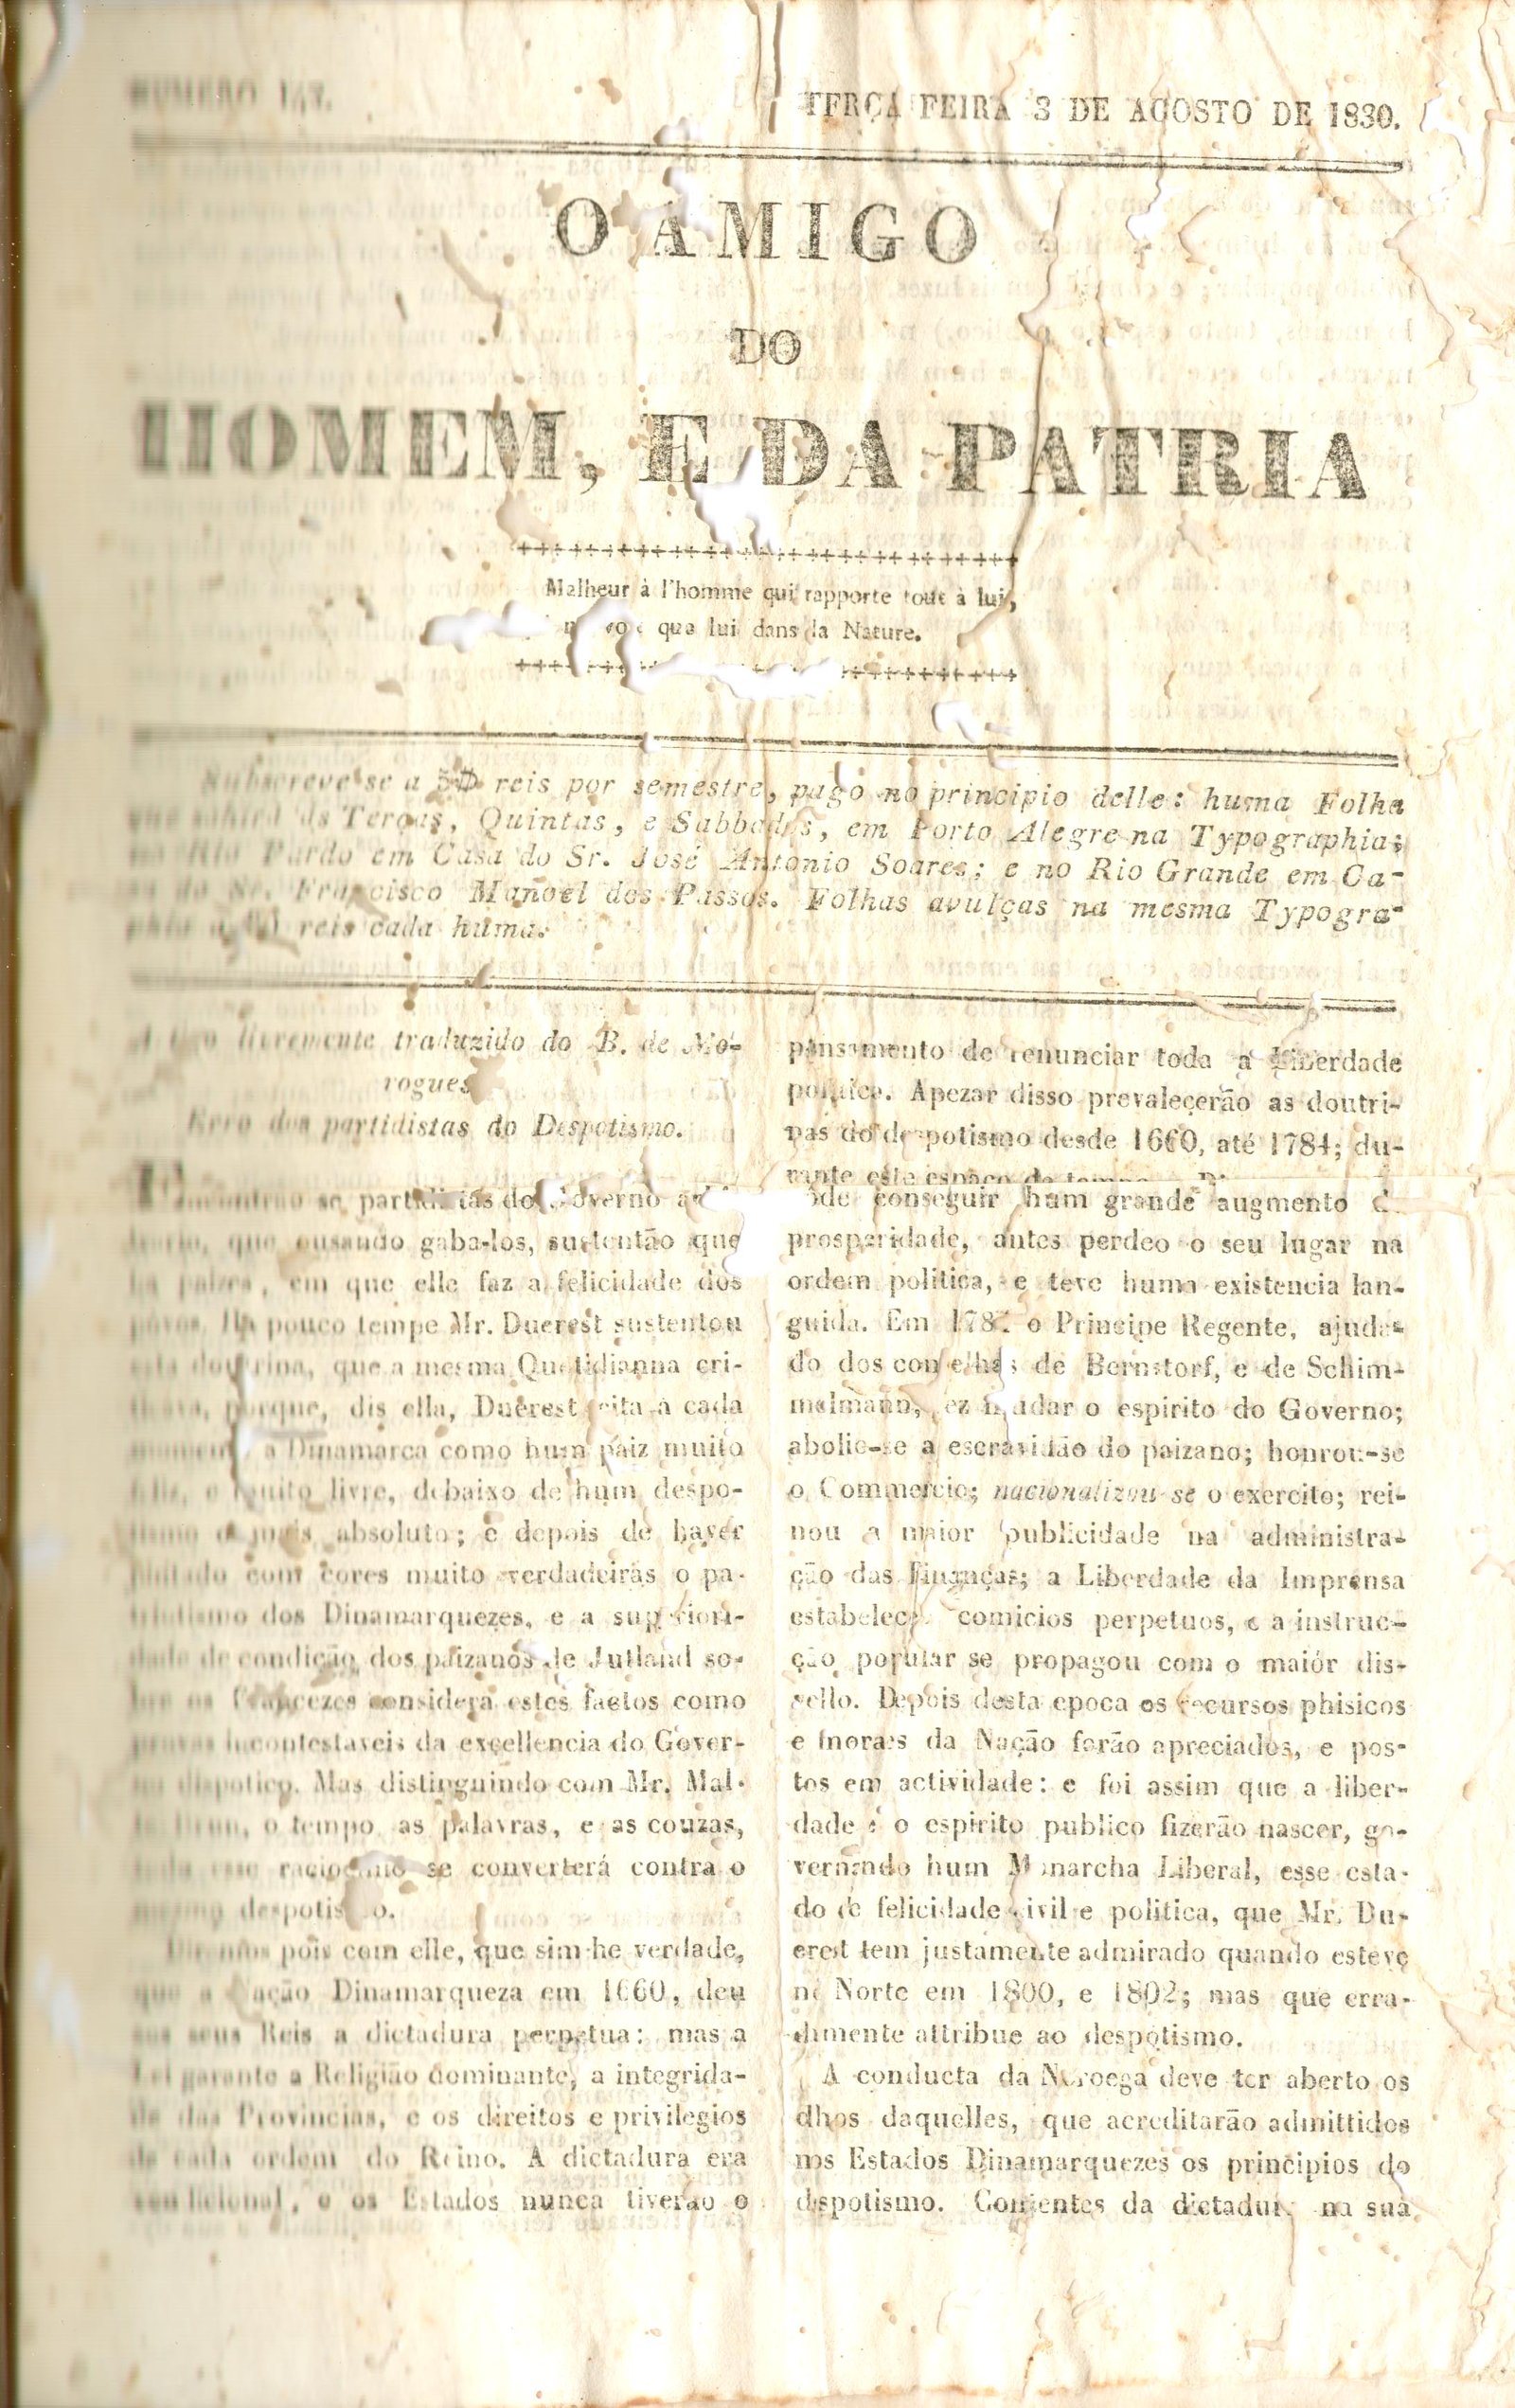 NUMERO 147.
TERÇA FEIRA 3 DE AGOSTO DE 1830.
O AMIGO
DO
HOMEM, E DA PATRIA
Malheur à l'homme qui rapporte tout à lui,
que lui dans la Nature.
Subscreve-se a reis por semestre, pago no principio delle: huma Folha
que sahirá ás Terças, Quintas, e Sabbados, em Porto Alegre na Typographia;
no Rio Pardo em Casa do Sr. José Antonio Soares; e no Rio Grande em Ca-
sa do Sr. Francisco Manoel dos Passos. Folhas avulças na mesma Typogra-
phia a reis cada huma.
livremente traduzido do B. de Mo-
rogues
Erro dos partidistas do Despotismo.
Encontrão se partidistas do Governo
que ousando gaba-los, sustentão que
ha paizes, em que elle faz a felicidade dos
povos. Ha pouco tempe Mr. Ducrest sustentou
esta doutrina, que a mesma Quotidianna cri-
porque, dis ella, Ducrest cita a cada
momento a Dinamarca como hum paiz muito
feliz, e muito livre, debaixo de hum despo-
tismo o mais absoluto; e depois de haver
pintado com cores muito verdadeiras o pa-
triotismo dos Dinamarquezes, e a superiori-
dade de condição dos paizanos de Jutland so-
bre os Francezes considera estes factos como
provas incontestaveis da excellencia do Gover-
no dispotico. Mas distinguindo com Mr. Mal-
te Brun, o tempo, as palavras, e as couzas,
todo esse raciocinio se converterá contra o
mesmo despotismo.
pois com elle, que sim he verdade,
que a Nação Dinamarqueza em 1660, deu
aos seus Reis a dictadura perpetua: mas a
Lei garante a Religião dominante, a integrida-
de das Provincias, e os direitos e privilegios
de cada ordem do Reino. A dictadura era
condicional, e os Estados nunca tiverão o
pensamento de renunciar toda a Liberdade
politica. Apezar disso prevalecerão as doutri-
nas do despotismo desde 1660, até 1784; du-
rante este espaço de tempo
pôde conseguir hum grande augmento de
prosperidade, antes perdeo o seu lugar na
ordem politica, e teve huma existencia lan-
guida. Em o Principe Regente, ajuda-
do dos conselhos de Bernstorf, e de Schim-
melmann, fez mudar o espirito do Governo;
abolio-se a escravidão do paizano; honrou-se
o Commercio; nacionalizou-se o exercito; rei-
nou a maior publicidade na administra-
ção das Finanças; a Liberdade da Imprensa
estabelece comicios perpetuos, e a instruc-
ção popular se propagou com o maiór dis-
vello. Depois desta epoca os recursos phisicos
e moraes da Nação forão apreciados, e pos-
tos em actividade: e foi assim que a liber-
dade e o espirito publico fizerão nascer, go-
vernando hum Monarcha Liberal, esse esta-
do de felicidade civil e politica, que Mr. Du-
crest tem justamente admirado quando esteve
no Norte em 1800, e 1802; mas que erra-
damente attribue ao despotismo.
A conducta da Noroega deve ter aberto os
olhos daquelles, que acreditarão admittidos
nos Estados Dinamarquezes os principios do
despotismo. Contentes da dictadura na sua